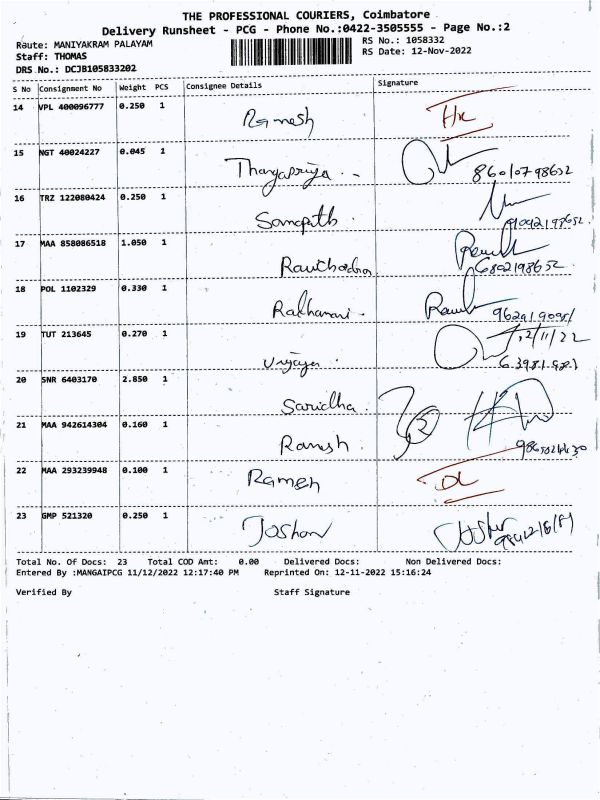 THE PROFESSIONAL COURIERS, Coimbatore
Delivery Runsheet - PCG - Phone No.:0422-3505555 - Page No.:2
Raute: MANIYAKRAM PALAYAM
RS No.: 1058332
Staff: THOMAS
RS Date: 12-Nov-2022
DRS No.: DCJB105833202
S No Consignment No Weight PCS Consignee Details Signature
14 VPL 400096777 0.250 1 Ramesh
15 NGT 40024227 0.045 1
86010798652
16 TRZ 122080424 0.250 1 Sampath
17 MAA 858086518 1.050 1
6802198652
18 POL 1102329 0.330 1
19 TUT 213645 0.270 1 12/11/22
20 SNR 6403170 2.850 1 Saridha
21 MAA 942614304 0.160 1 Ramesh
22 MAA 293239948 0.100 1 Ramesh
23 GMP 521320 0.250 1 Joshon
Total No. Of Docs: 23 Total COD Amt: 0.00 Delivered Docs: Non Delivered Docs:
Entered By :MANGAIPCG 11/12/2022 12:17:40 PM Reprinted On: 12-11-2022 15:16:24
Verified By Staff Signature